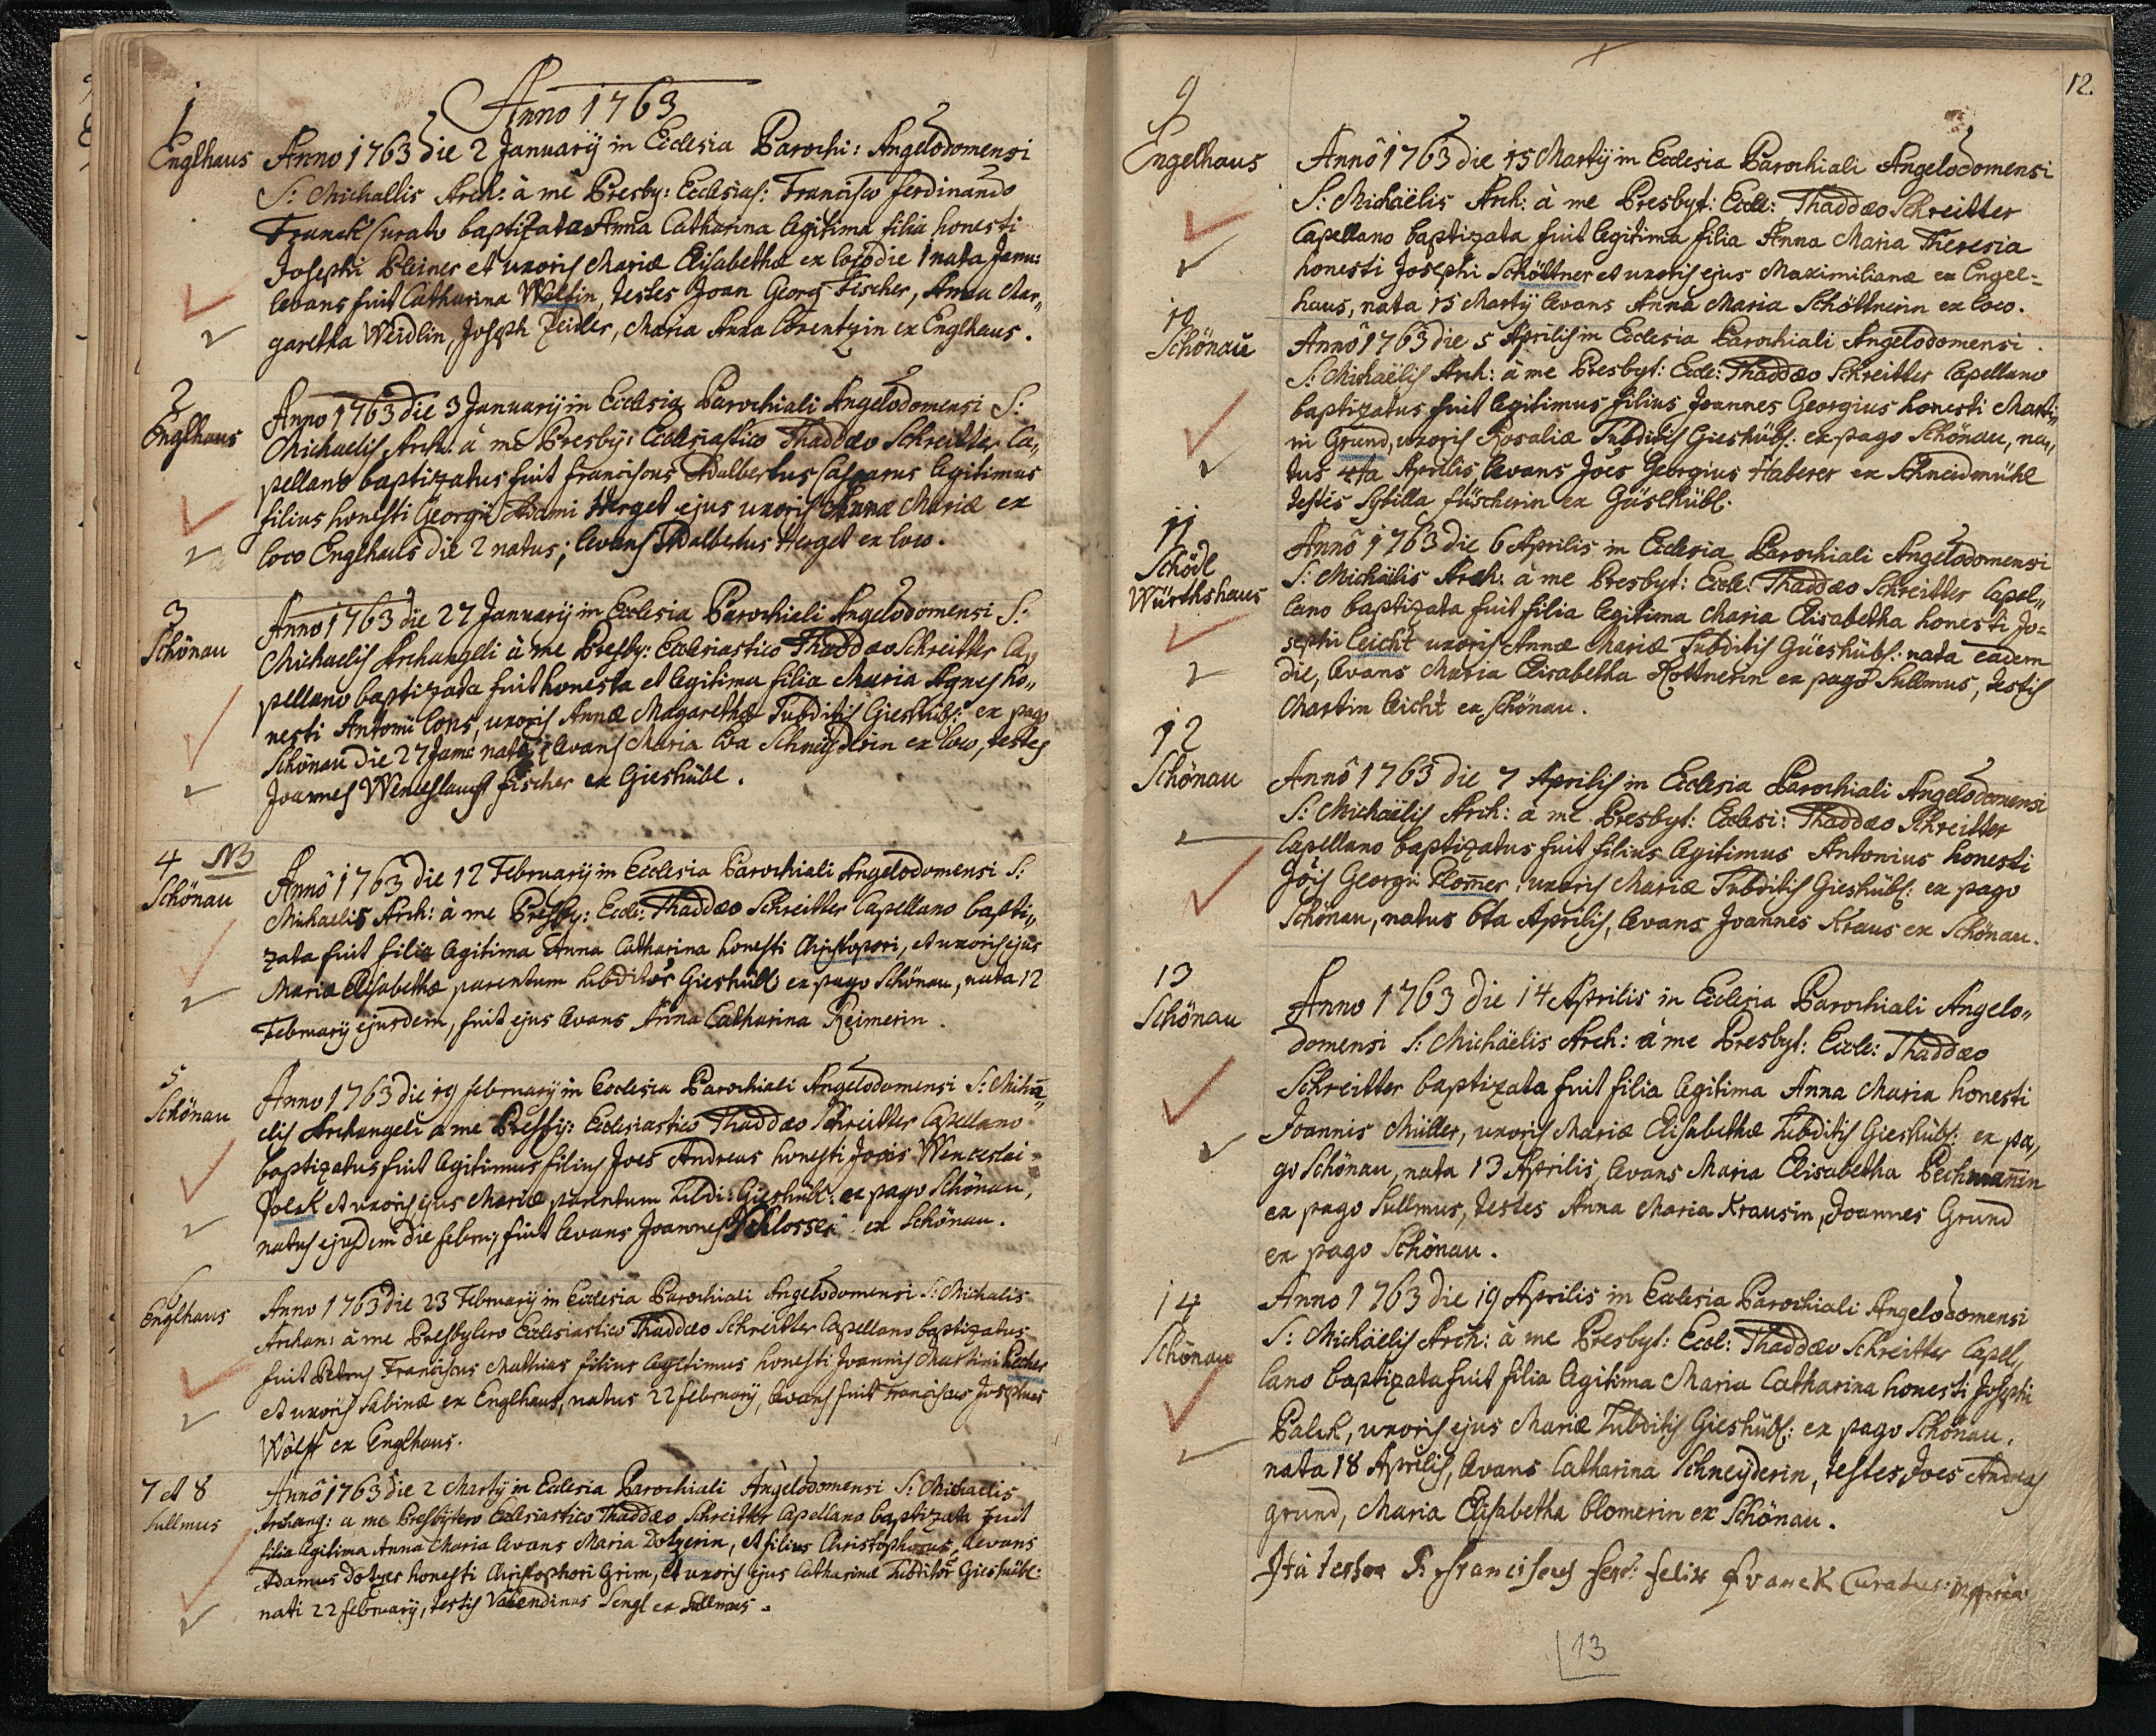 Anno 1763
1
Englhaus
Anno 1763 die 2 Januarij in Ecclesia Parochi: Angelodomensi
S: Michallis Arch: à me Presby: Ecclesias: Francisco Ferdinando
Franck Curato baptizata Anna Catharina legitima filia honesti
Josephi Pleiner et uxoris Mariæ Elisabethæ ex loco die 1 nata Janu:
levans fuit Catharina Wolfin, testes Joan Georg Fischer, Anna Mar„
garetha Weidlin, Joseph Zeidler, Maria Anna Lorentzin ex Englhaus.
2
Englhaus
Anno 1763 die 3 Januarij in Ecclesia Parochiali Angelodomensi S:
Michaelis Arch: à me Presby: Ecclesiastico Thaddæo Schreitter Ca„
pellano baptizatus fuit Franciscus Adalbertus Casparus legitimus
filius honesti Georgij Adami Herget ejus uxoris Annæ Mariæ ex
loco Englhaus die 2 natus; levans Adalbertus Herget ex loco.
3
Schönau
Anno 1763 die 27 Januarij in Ecclesia Parochieli Angelodomensi S:
Michaelis Archangeli à me Presby: Ecclesiastico Thaddæo Schreitter Ca„
pellano baptizata fuit honesta et legitima filia Maria Agnes ho„
nesti Antonii Cons, uxoris Annæ Magarethæ Subditis Gieshübl: ex pago
Schönau die 27 Janu nata, levans Maria Eva Schneÿderin ex loco, testes
Joannes Wenceslaus Fischer ex Gieshübl.
4 NB
Schönau
Annô 1763 die 12 Februarij in Ecclesia Parochiali Angelodomensi S:
Michaelis Arch: à me Presby: Eccle: Thaddæo Schreitter Capellano bapti„
zata fuit filia legitima Anna Catharina honesti Christopori, et uxoris ejus
Mariæ Elisabethæ parentum subditor Gieshübl: ex pago Schönau, nata 12
Februarij ejusdem, fuit ejus levans Anna Catharina Reimerin.
5
Schönau
Anno 1763 die 19 februarij in Ecclesia Parochiali Angelodomensi S: Micha„
elis Archangeli à me Presby: Ecclesiastico Thaddæo Schreitter Capellano
baptizatus fuit legitimus filius Joes Andreas honesti Joais Wenceslai
Polak et uxoris ejus Mariæ parentum Subdi: Gieshübl: ex pago Schönau,
natus ejusdem die febru; fuit levans Joannes Schlosser ex Schönau.
6
Englhaus
Anno 1763 die 23 Februarij in Ecclesia Parochiali Angelodomensi S: Michalis
Archan: à me Presbytero Ecclesiastico Thaddæo Schreitter Capellano baptizatus
fuit Petrus Franciscus Mathias filius legitimus honesti Joannis Martini Pecher
et uxoris Sabinæ ex Englhaus, natus 22 februarij, levans fuit Franciscus Josephus
Wolff ex Englhaus.
7 et 8
Sullmus
Annô 1763 die 2 Martij in Eclesia Parochiali Angelodomensi S: Michaelis
Archang: à me Presbytero Ecclesiastico Thaddæo Schreitter Capellano baptizata fuit
filia legitima Anna Maria levans Maria Dotzerin, et filius Christophorus, levans
Adamus Dotzer honesti Christophori Grim, et uxoris ejus Catharinæ Subditor Gieshübl:
nati 22 februarij, testis Valendinus Sengl ex Sullmus.
12.
9
Engelhaus
Annô 1763 die 15 Martij in Ecclesia Parochiali Angelodomensi
S: Michaëlis Arch: à me Presbyt: Eccle: Thaddæo Schreitter
Capellano baptizata fuit legitima filia Anna Maria Theresia
honesti Josephi Schöttner et uxoris ejus Maximilianæ ex Engel=
haus, nata 15 Martij levans Anna Maria Schöttnerin ex loco.
10
Schönau
Annô 1763 die 5 Aprilis in Ecclesia Parochiali Angelodomensi
S: Michaëlis Arch: à me Presbyt: Eccle: Thaddæo Schreitter Capellano
baptizatus fuit legitimus filius Joannes Georgius honesti Marti„
ni Grund, uxoris Rosaliæ Subditis Gieshübl: ex pago Schönau, na„
tus 4ta Aprilis, levans Joes Georgius Haberer ex Schneidmühl
testis Sybilla Füscherin ex Güsshübl.
11
Schödl
Würthshaus
Annô 1763 die 6 Aprilis in Ecclesia Parochiali Angelodomensi
S: Michäelis Arch: à me Presbyt: Eccle: Thaddæo Schreitter Capel„
lano baptizata fuit filia legitima Maria Elisabetha honesti Jo=
sephi Leicht uxoris Annæ Mariæ Subditis Güeshübl: nata eadem
die, levans Maria Elisabetha Rottnerin ex pago Sullmus, testis
Martin Leicht ex Schönau.
12
Schönau
Annô 1763 die 7 Aprilis in Ecclesia Parochiali Angelodomensi
S: Michaëlis Arch: à me Presbyt: Ecclesi: Thaddæo Schreitter
Capellano baptizatus fuit filius legitimus Antonius honesti
Jois Georgii Plom̄er, uxoris Mariæ Subditis Gieshübl: ex pago
Schönau, natus 6ta Aprilis, levans Joannes Kraus ex Schönau.
13
Schönau
Anno 1763 die 14 Aprilis in Ecclesia Parochiali Angelo„
domensi S: Michäelis Arch: à me Presbyt: Eccle: Thaddæo
Schreitter baptizata fuit filia legitima Anna Maria honesti
Joannis Müller, uxoris Mariæ Elisabethæ Subditis Gieshübl: ex pa„
go Schönau, nata 13 Aprilis, levans Maria Elisabetha Pechman̄in
ex pago Sullmus, testes Anna Maria Krausin, Joannes Grund
ex pago Schönau.
14
Schönau
Anno 1763 die 19 Aprilis in Ecclesia Parochiali Angelodomensi
S: Michäelis Arch: à me Presbyt: Eccl: Thaddæo Schreitter Capel„
lano baptizata fuit filia legitima Maria Catharina honesti Josephi
Palek, uxoris ejus Mariæ Subditis Gieshübl: ex pago Schönau,
nata 18 Aprilis, levans Catharina Schneyderin, testes Joes Andreas
grund, Maria Elisabetha Clomerin ex Schönau.
Ita testor P. Franciscus Ferd: Felix Franck Curatus mppria
13